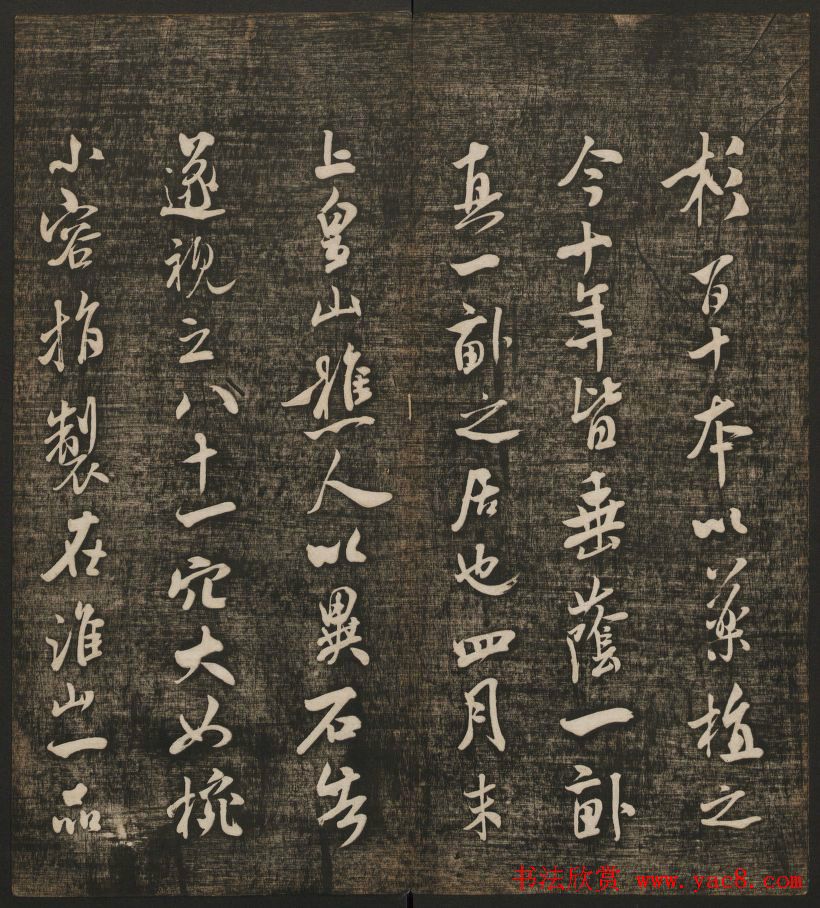 杉百十本以药植之
今十年皆垂蔭一畝
真一畝之居也四月末
上皇山樵人以異石告
遂視之八十一穴大如椀
小容指製在淮山一品
书法欣赏 www.yac8.com